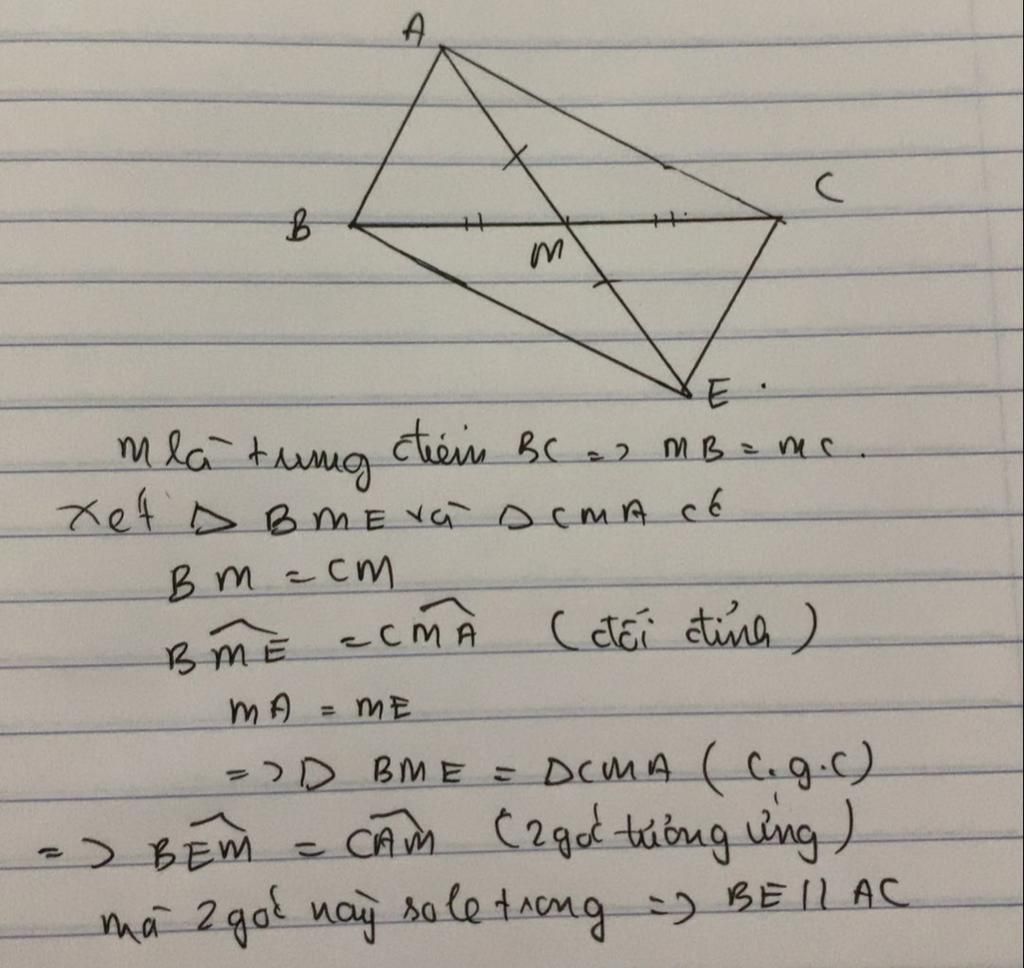 A
C
B
M
E
M là trung điểm BC => MB = MC.
Xét Δ BME và Δ CMA có
BM = CM
BM̂E = CM̂A (đối đỉnh)
MA = ME
=> Δ BME = ΔCMA (c.g.c)
=> BÊM = CÂM (2 góc tương ứng)
mà 2 góc này so le trong => BE // AC